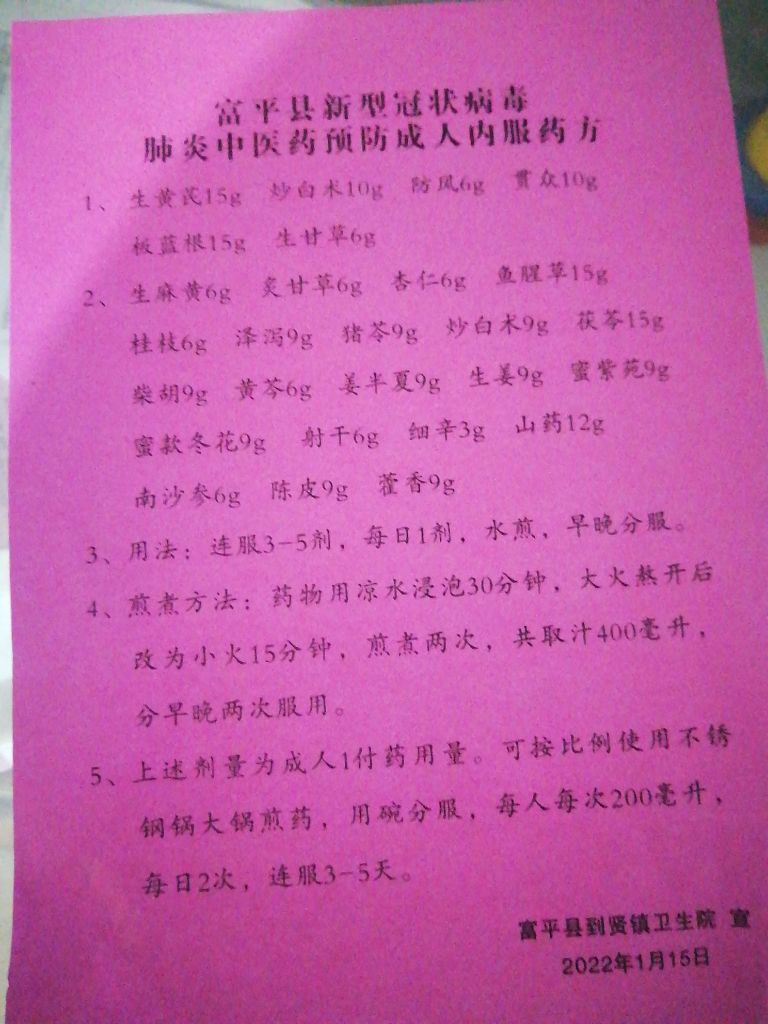 富平县新型冠状病毒
肺炎中医药预防成人内服药方
1、生黄芪15g 炒白术10g 防风6g 贯众10g
板蓝根15g 生甘草6g
2、生麻黄6g 炙甘草6g 杏仁6g 鱼腥草15g
桂枝6g 泽泻9g 猪苓9g 炒白术9g 茯苓15g
柴胡9g 黄芩6g 姜半夏9g 生姜9g 蜜紫苑9g
蜜款冬花9g 射干6g 细辛3g 山药12g
南沙参6g 陈皮9g 藿香9g
3、用法：连服3-5剂，每日1剂，水煎，早晚分服。
4、煎煮方法：药物用凉水浸泡30分钟，大火熬开后
改为小火15分钟，煎煮两次，共取汁400毫升，
分早晚两次服用。
5、上述剂量为成人1付药用量。可按比例使用不锈
钢锅大锅煎药，用碗分服，每人每次200毫升，
每日2次，连服3-5天。
富平县到贤镇卫生院 宣
2022年1月15日